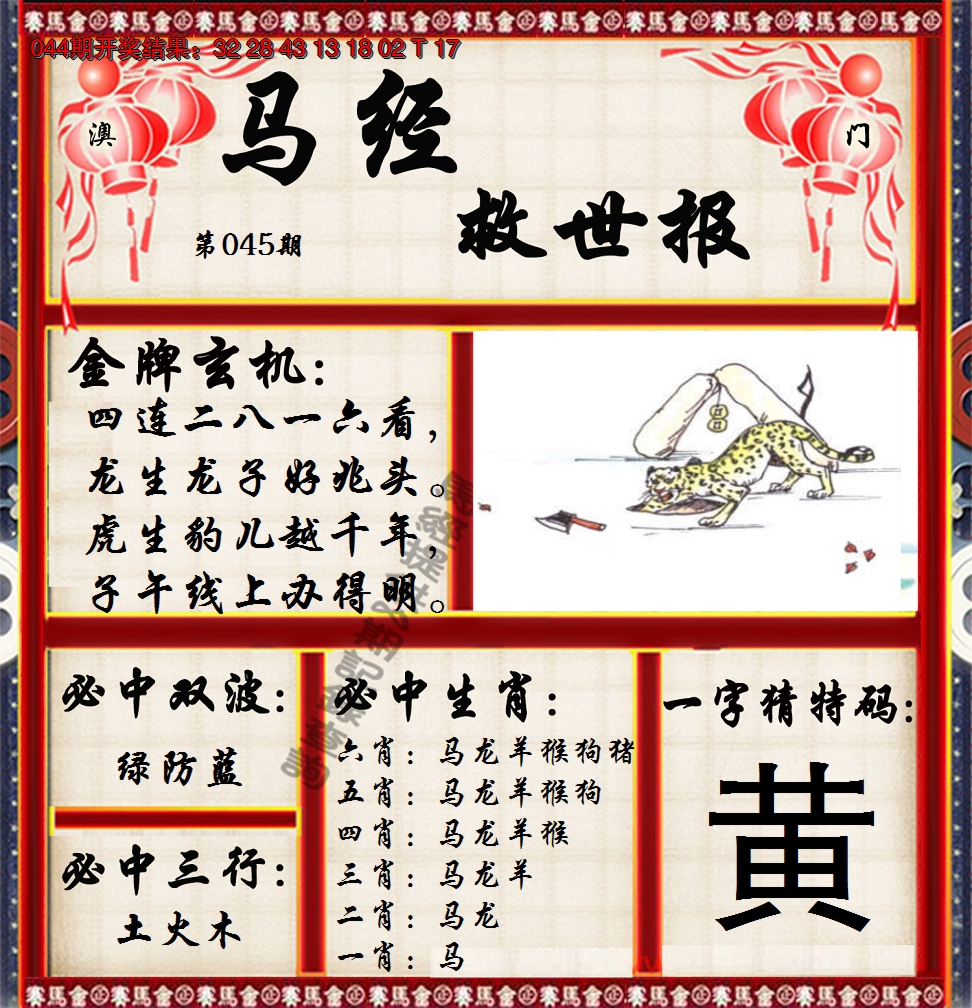 044期开奖结果：32 28 43 13 18 02 T 17
澳
门
马经
救世报
第045期
金牌玄机：
四连二八一六看，
龙生龙子好兆头。
虎生豹儿越千年，
子午线上办得明。
必中双波：
绿防蓝
必中三行：
土火木
必中生肖：
六肖：马龙羊猴狗猪
五肖：马龙羊猴狗
四肖：马龙羊猴
三肖：马龙羊
二肖：马龙
一肖：马
一字猜特码：
黄